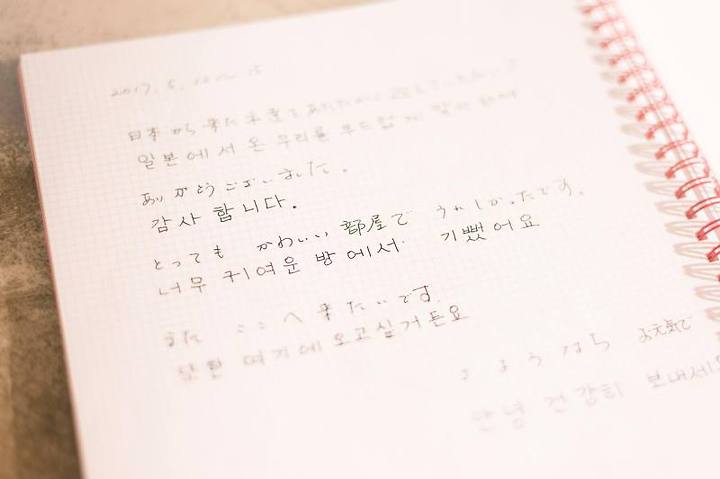 2017. 5.
日本から来た
일본에서 온 우리를 부드럽게
ありがとうございました。
감사합니다.
とっても かわいい 部屋で うれしかったです。
너무 귀여운 방에서 기뻤어요
また ここへ 来たいです。
또한 여기에 오고싶거든요
さようなら お元気で
안녕 건강히 보내세요